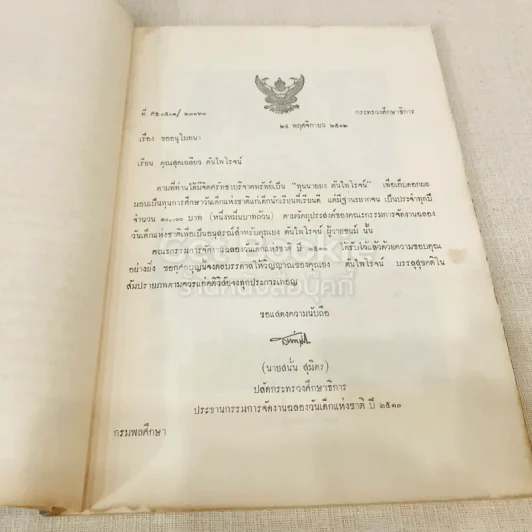 ที่ ศธ.๐๕๐๓/
กระทรวงศึกษาธิการ
๒๘ พฤศจิกายน ๒๕๑๒
เรื่อง ขออนุโมทนา
เรียน คุณสุดเฉลียว ตันไพโรจน์
ตามที่ท่านได้มีจิตศรัทธาบริจาคทรัพย์เป็น "ทุนนายยง ตันไพโรจน์" เพื่อเก็บดอกผล
มอบเป็นทุนการศึกษาวันเด็กแห่งชาติแก่เด็กนักเรียนที่เรียนดี แต่มีฐานะยากจน เป็นประจำทุกปี
จำนวน ๑๐,๐๐๐ บาท (หนึ่งหมื่นบาทถ้วน) ตามวัตถุประสงค์ของคณะกรรมการจัดงานฉลอง
วันเด็กแห่งชาติเพื่อเป็นอนุสรณ์สำหรับคุณยง ตันไพโรจน์ ผู้วายชนม์ นั้น
คณะกรรมการจัดงานฉลองวันเด็กแห่งชาติ ปี ๒๕๑๓ ได้รับไว้แล้วด้วยความขอบคุณ
อย่างยิ่ง ขอกุศลบุญนี้จงดลบรรดาลให้วิญญาณของคุณยง ตันไพโรจน์ บรรลุสุขคติใน
สัมปรายภพตามควรแก่คติวิสัยจงทุกประการเทอญ
ขอแสดงความนับถือ
(นายสนั่น สุมิตร)
ปลัดกระทรวงศึกษาธิการ
ประธานกรรมการจัดงานฉลองวันเด็กแห่งชาติ ปี ๒๕๑๓
กรมพลศึกษา
ร้านหนังสือบุ๊คกี้